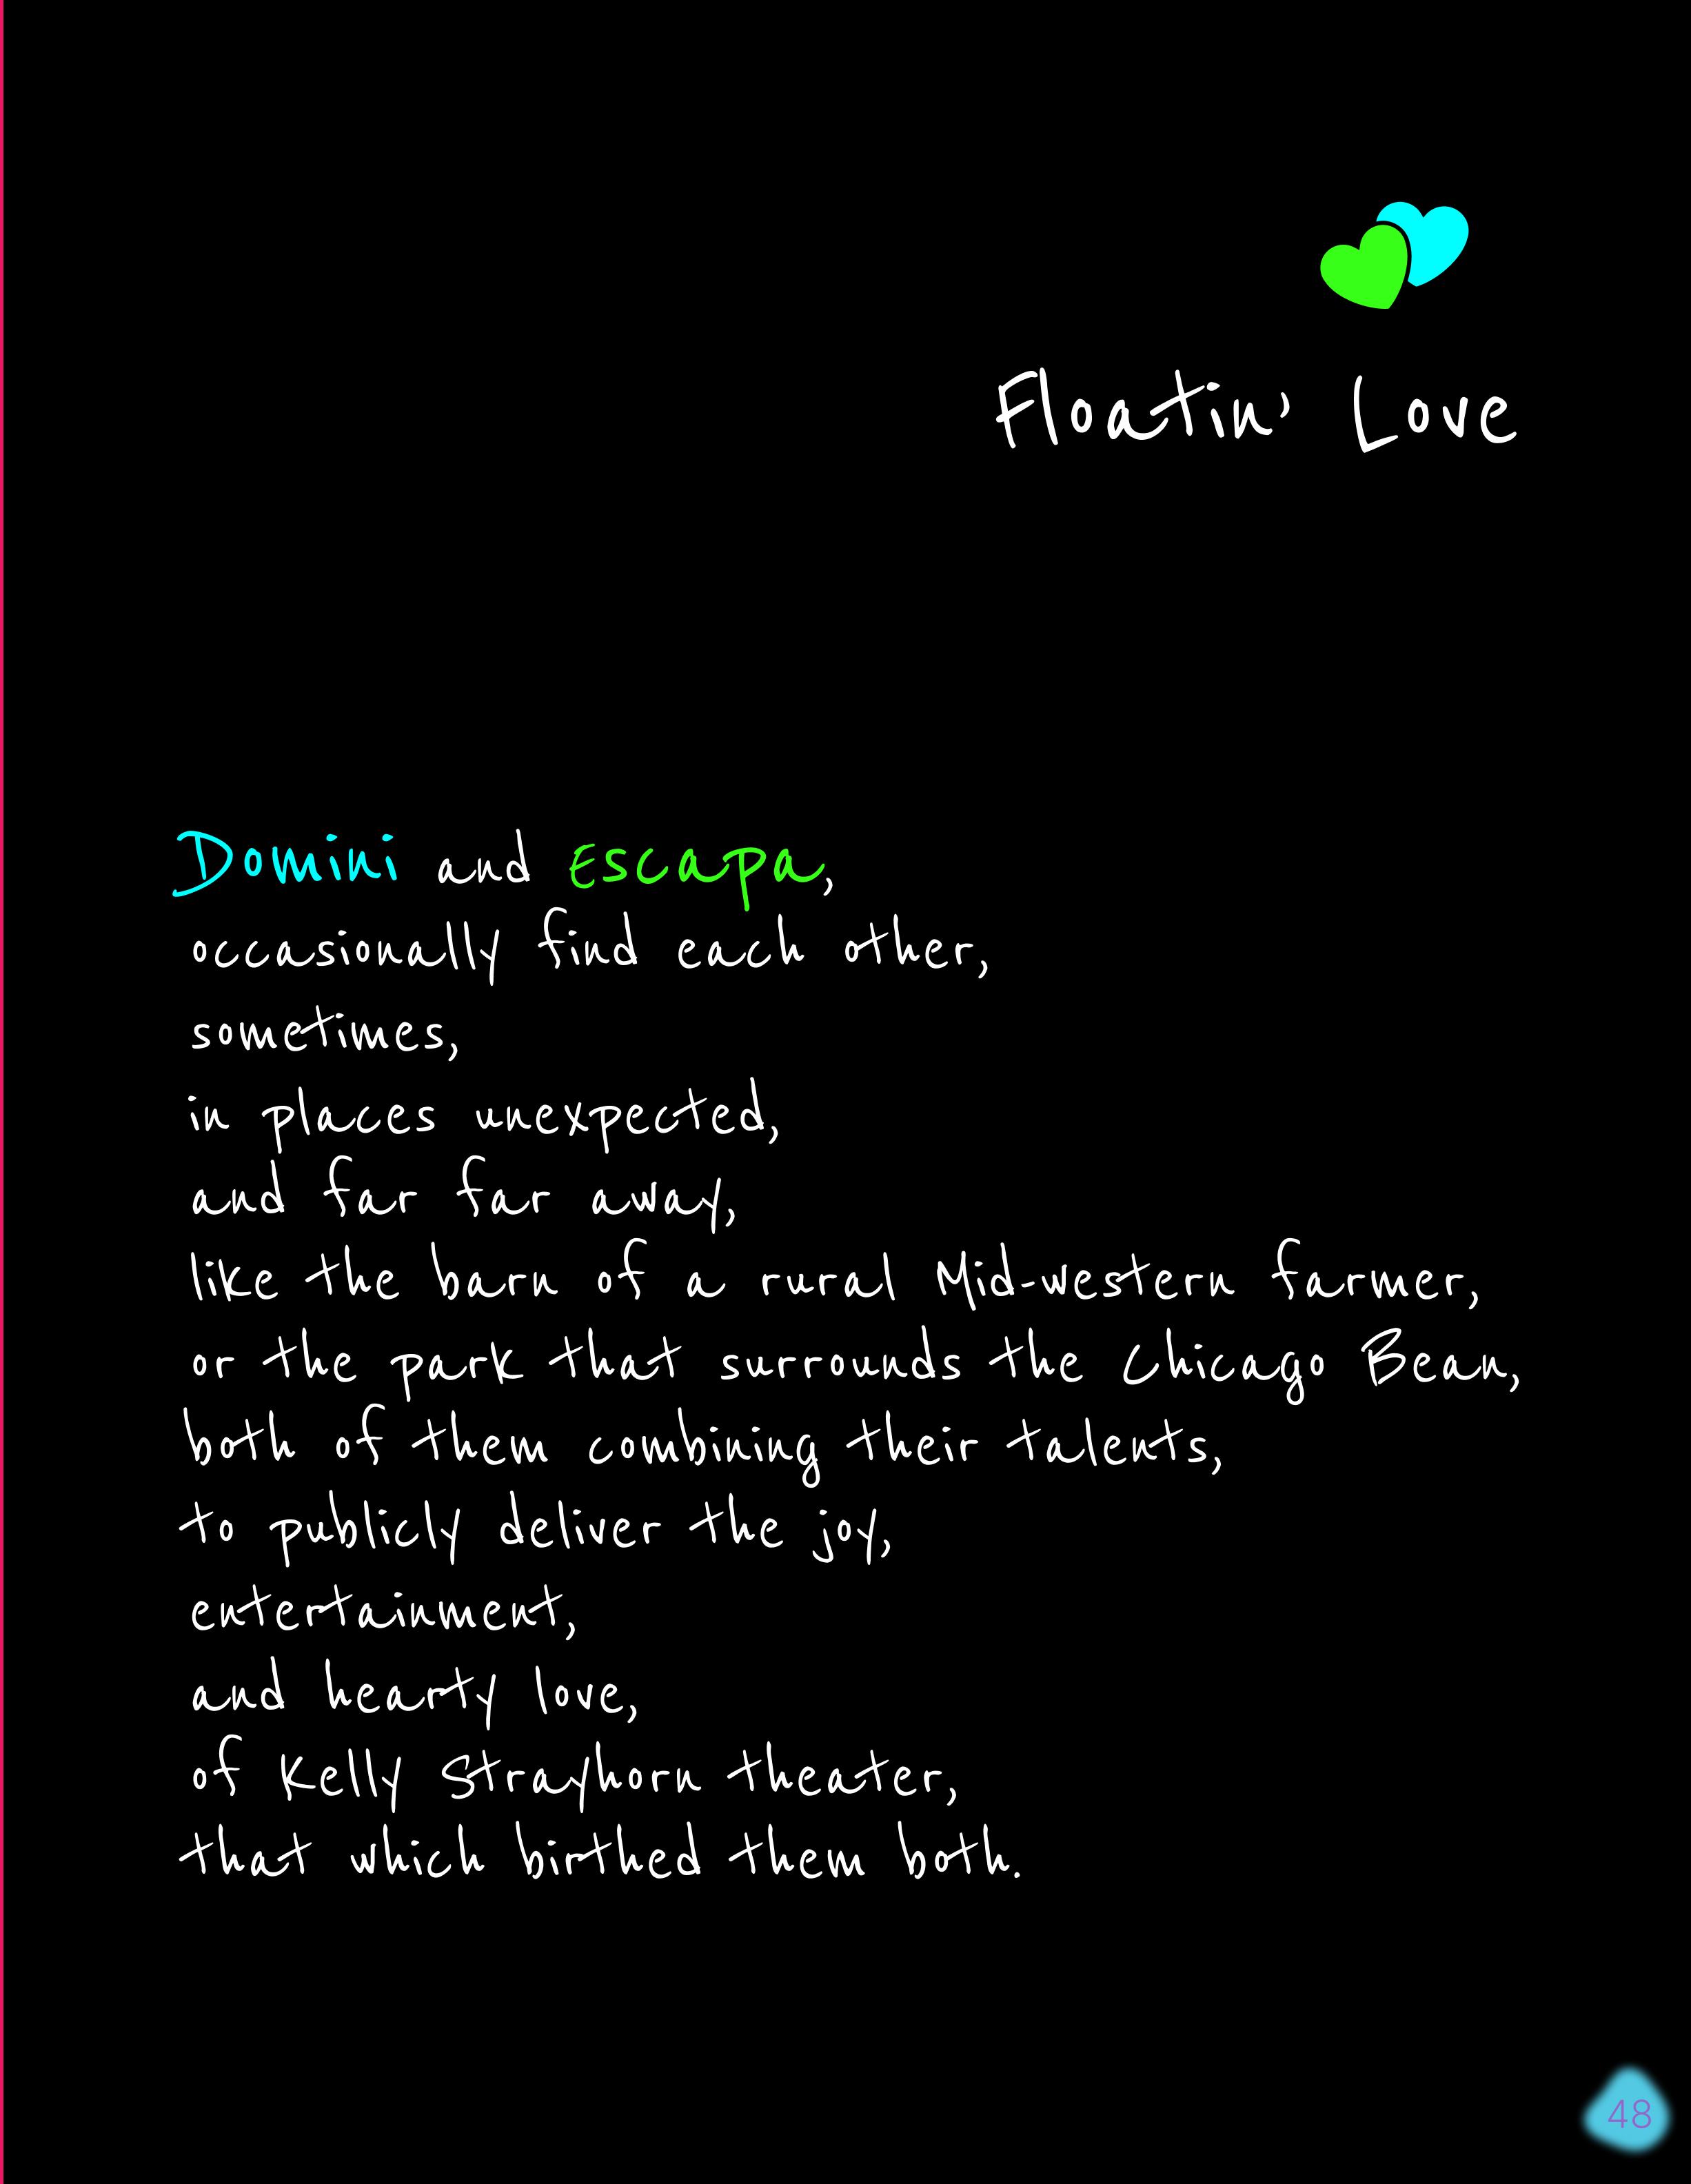 Floatin' Love
Domini and Escapa,
occasionally find each other,
sometimes,
in places unexpected,
and far far away,
like the barn of a rural Mid-western farmer,
or the park that surrounds the Chicago Bean,
both of them combining their talents,
to publicly deliver the joy,
entertainment,
and hearty love,
of Kelly Strayhorn theater,
that which birthed them both.
48